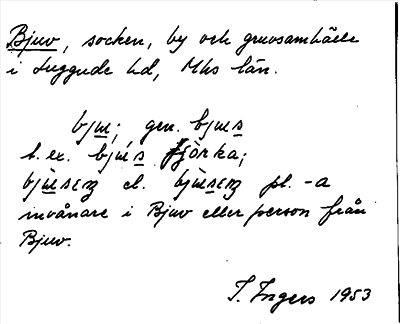 Bjuv, socken, by och gruvsamhälle
i Luggude hd, Mhs län.
bjʉ; gen. bjʉs
t. ex. bjʉ́s fjòrka;
bjʉ̀sɛŋ el. bjʉ̀sɛŋ pl. -a
invånare i Bjuv eller person från
Bjuv.
I. Ingers 1953